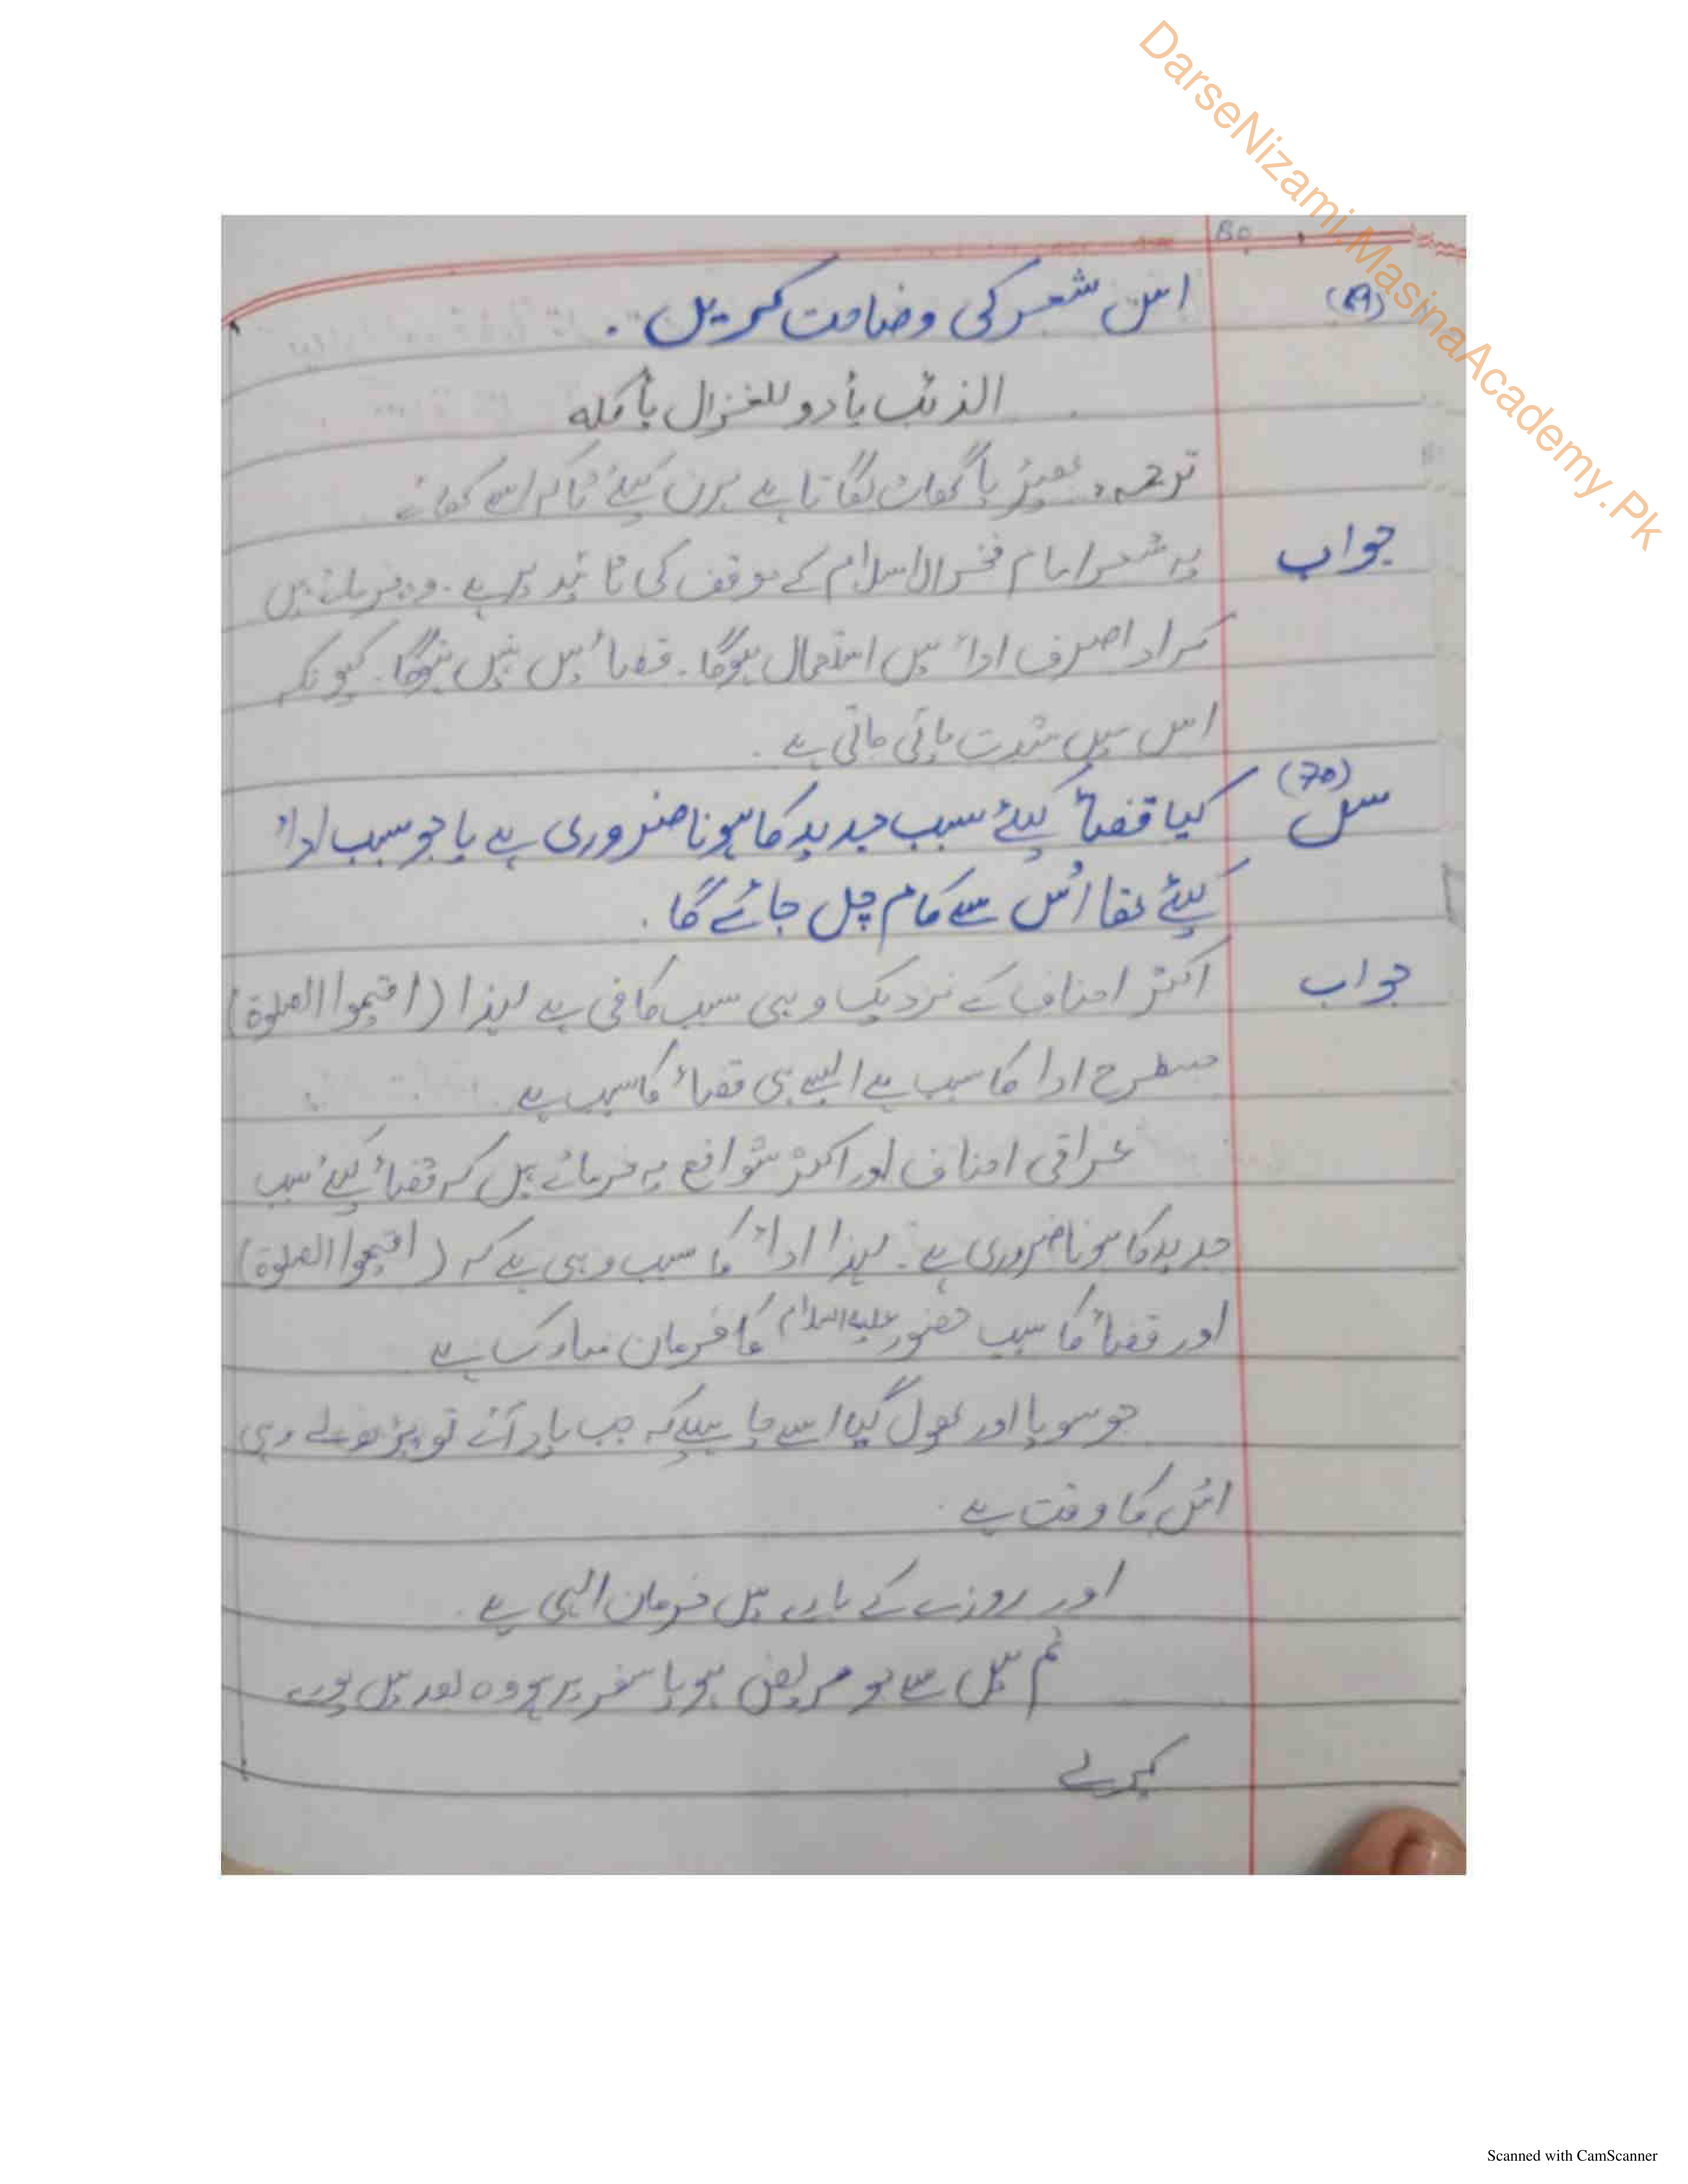 DarseNizami.MasinaAcademy.Pk
(69) اس شعر کی وضاحت کریں ۔
الذئب یأدو للغزال یأکلہ
ترجمہ: بھیڑیا گھات لگاتا ہے ہرن کیلئے تاکہ اسے کھائے
جواب یہ شعر امام فخر الاسلام کے موقف کی تائید پر ہے ۔ وہ فرماتے ہیں
کہ ادا صرف اداء میں استعمال ہوگا ۔ قضاء میں نہیں ہوگا ۔ کیونکہ
اس میں شدت پائی جاتی ہے ۔
سل (70) کیا قضاء کیلئے سبب جدید کا ہونا ضروری ہے یا جو سبب اداء
کیلئے تھا اُس سے کام چل جائے گا ۔
جواب اکثر احناف کے نزدیک وہی سبب کافی ہے لہذا (اقیموا الصلوۃ)
جسطرح ادا کا سبب ہے ایسے ہی قضاء کا سبب ہے
عراقی احناف اور اکثر شوافع یہ فرماتے ہیں کہ قضاء کیلئے سبب
جدید کا ہونا ضروری ہے ۔ لہذا اداء کا سبب وہی ہے کہ (اقیموا الصلوۃ)
اور قضاء کا سبب حضور علیہ السلام کا فرمان مبارک ہے
جو سویا اور بھول گیا اسے چاہیئے کہ جب یاد آئے تو پڑھ لے وہی
اس کا وقت ہے
اور روزے کے بارے میں فرمان الہی ہے ۔
تم میں سے جو مریض ہو یا سفر پر ہو وہ بعد میں پورے
کرلے
Scanned with CamScanner